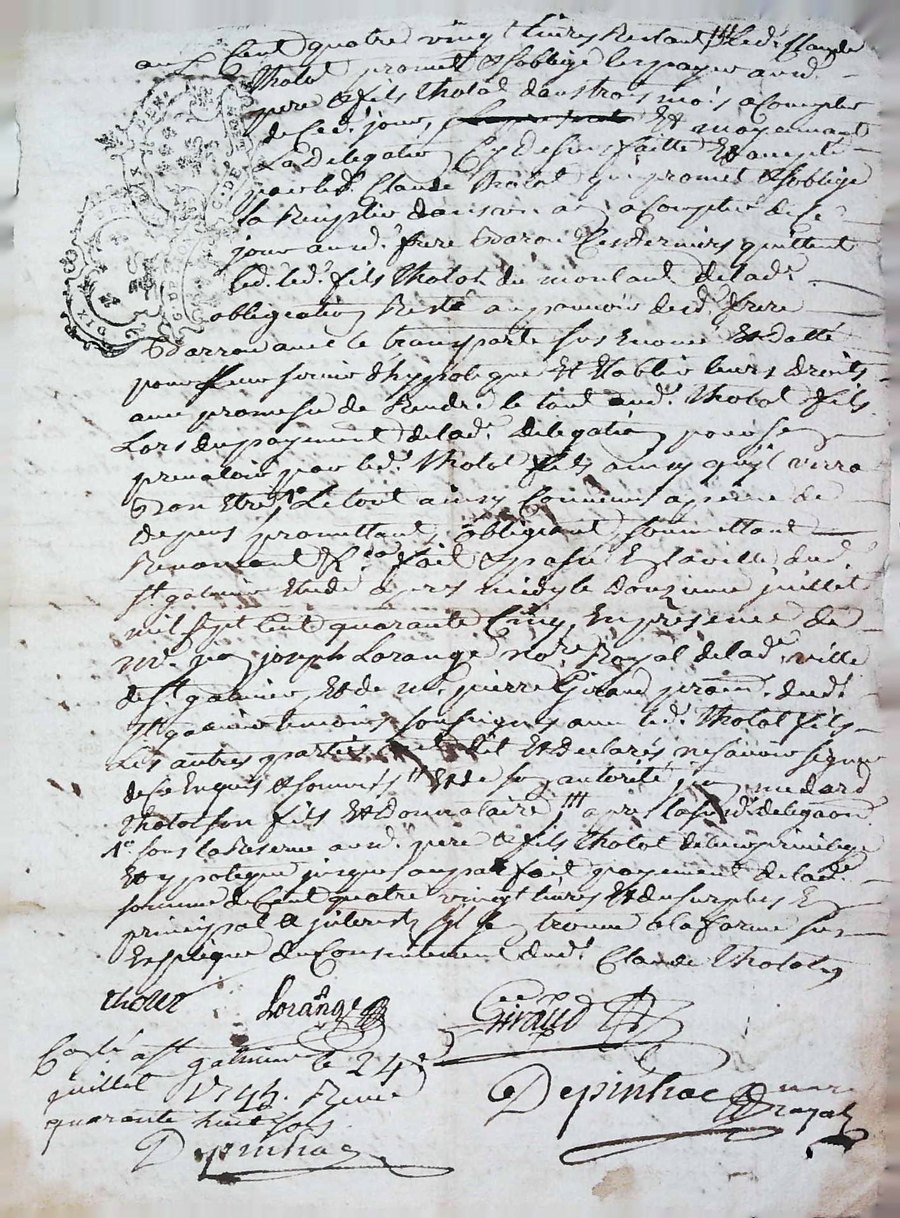 aux Cent quatre vingt livres Restant /// led. Claude
Tholot promet & soblige les payer aud.
pere & fils Tholot dans trois mois a Compter
de Ced. jour, Et moyennant
La Delegation Cy Dessus faitte Et accepté
par led. Claude Tholot qui promet & soblige
la Remplir dans un an a Compter de Ce
jour aud. frere Darou Ces derniers quittent
led. fils Tholot du montant de lad.
obligation Resté au pouvoir desd. frere
Darrou avec le transporte sus Enoncé Et datté
pour leur servir d'hypoteque Et Etablir leurs droits
avec promesse de Rendre le tout aud. Tholot fils
Lors du payement de lad. delegation pour se
prevaloir par led. Tholot fils ainsy quyl verra
Bon Etre, Le tout ainsy Convenu a peine de
depens promettant, obligeant, soumettant
Renonçant &a. fait & passé En la ville dud.
St. galmier Etude apres midy le Douzieme juillet
mil sept Cent quarante Cinq, En presence de
Mr. jean joseph Lorange nore. Royal de lad. ville
de St. galmier, Et de Mr. pierre Giraud prat. dud.
St. galmier temoins soussignés avec led. Tholot fils
Les autres parties ont dit Et declarés ne savoir signer
de ce Enquis & sommés /// Et de son autorité jean medard
Tholot son fils Et Donnataire /// apres la susd. delegaon
sous la Reserve aud. pere & fils Tholot de leur privilege
Et ypoteque jusques au parfait payement de lad.
somme de Cent quatre vingt livres Et du surplus En
principal & interest syl se trouve a la forme sus
Expliqué du Consentement dud. Claude Tholot
tholot Lorange Giraud
Contlé. a St. galmier le 24e
juillet 1745. Reçu
quarante huit sols
Depinhac
Depinhac nore Royal
DIX DEN
G. DE